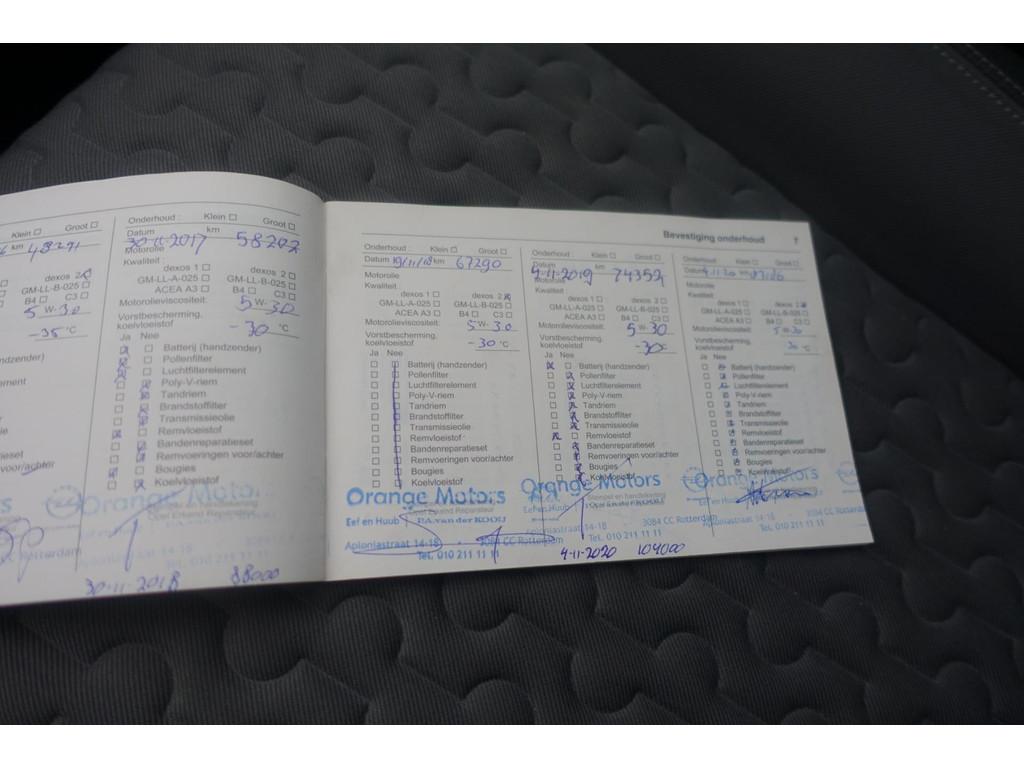 Klein ☐ Groot ☐
km 48291
dexos 2 ☒
GM-LL-B-025 ☐
B4 ☐ C3 ☐
5 W-30
-35 °C
Onderhoud : Klein ☐ Groot ☐
Datum 30-11-2017 km 58202
Motorolie
Kwaliteit:
dexos 1 ☐ dexos 2 ☐
GM-LL-A-025 ☐ GM-LL-B-025 ☐
ACEA A3 ☐ B4 ☐ C3 ☐
Motorolieviscositeit: 5 W-30
Vorstbescherming,
koelvloeistof -30 °C
Ja Nee
Batterij (handzender)
Pollenfilter
Luchtfilterelement
Poly-V-riem
Tandriem
Brandstoffilter
Transmissieolie
Remvloeistof
Bandenreparatieset
Remvoeringen voor/achter
Bougies
Koelvloeistof
Orange Motors
30-11-2018 88000
Bevestiging onderhoud 7
Onderhoud : Klein ☐ Groot ☐
Datum 19/11/18 km 67290
Motorolie
Kwaliteit:
dexos 1 ☐ dexos 2 ☒
GM-LL-A-025 ☐ GM-LL-B-025 ☐
ACEA A3 ☐ B4 ☐ C3 ☐
Motorolieviscositeit: 5 W-30
Vorstbescherming,
koelvloeistof -30 °C
Ja Nee
Batterij (handzender)
Pollenfilter
Luchtfilterelement
Poly-V-riem
Tandriem
Brandstoffilter
Transmissieolie
Remvloeistof
Bandenreparatieset
Remvoeringen voor/achter
Bougies
Koelvloeistof
Orange Motors
Opel Erkend Reparateur
Eef en Huub P.A. van der KOOIJ
Aploniastraat 14-18 3084 CC Rotterdam
Tel. 010 211 11 11
Onderhoud : Klein ☐ Groot ☐
Datum 4-11-2019 km 74359
Motorolie
Kwaliteit:
dexos 1 ☐ dexos 2 ☐
GM-LL-A-025 ☐ GM-LL-B-025 ☐
ACEA A3 ☐ B4 ☐ C3 ☐
Motorolieviscositeit: 5 W-30
Vorstbescherming,
koelvloeistof -30 °C
Ja Nee
Batterij (handzender)
Pollenfilter
Luchtfilterelement
Poly-V-riem
Tandriem
Brandstoffilter
Transmissieolie
Remvloeistof
Bandenreparatieset
Remvoeringen voor/achter
Bougies
Koelvloeistof
Orange Motors
Stempel en handtekening
Opel Erkend Reparateur
Eef en Huub
Aploniastraat 14-18 3084 CC Rotterdam
Tel. 010 211 11 11
4-11-2020 104000
Onderhoud : Klein ☐ Groot ☐
Datum 4.11.20 km
Motorolie
Kwaliteit:
dexos 1 ☐ dexos 2
GM-LL-A-025 ☐ GM-LL-B-025 ☐
ACEA A3 ☐ B4 ☐ C3 ☐
Motorolieviscositeit: 5 W-30
Vorstbescherming,
koelvloeistof 30 °C
Ja Nee
Batterij (handzender)
Pollenfilter
Luchtfilterelement
Poly-V-riem
Tandriem
Brandstoffilter
Transmissieolie
Remvloeistof
Bandenreparatieset
Remvoeringen voor/achter
Bougies
Koelvloeistof
Orange Motors
Eef en Huub
Aploniastraat 14-18 3084 CC Rotterdam
Tel. 010 211 11 11